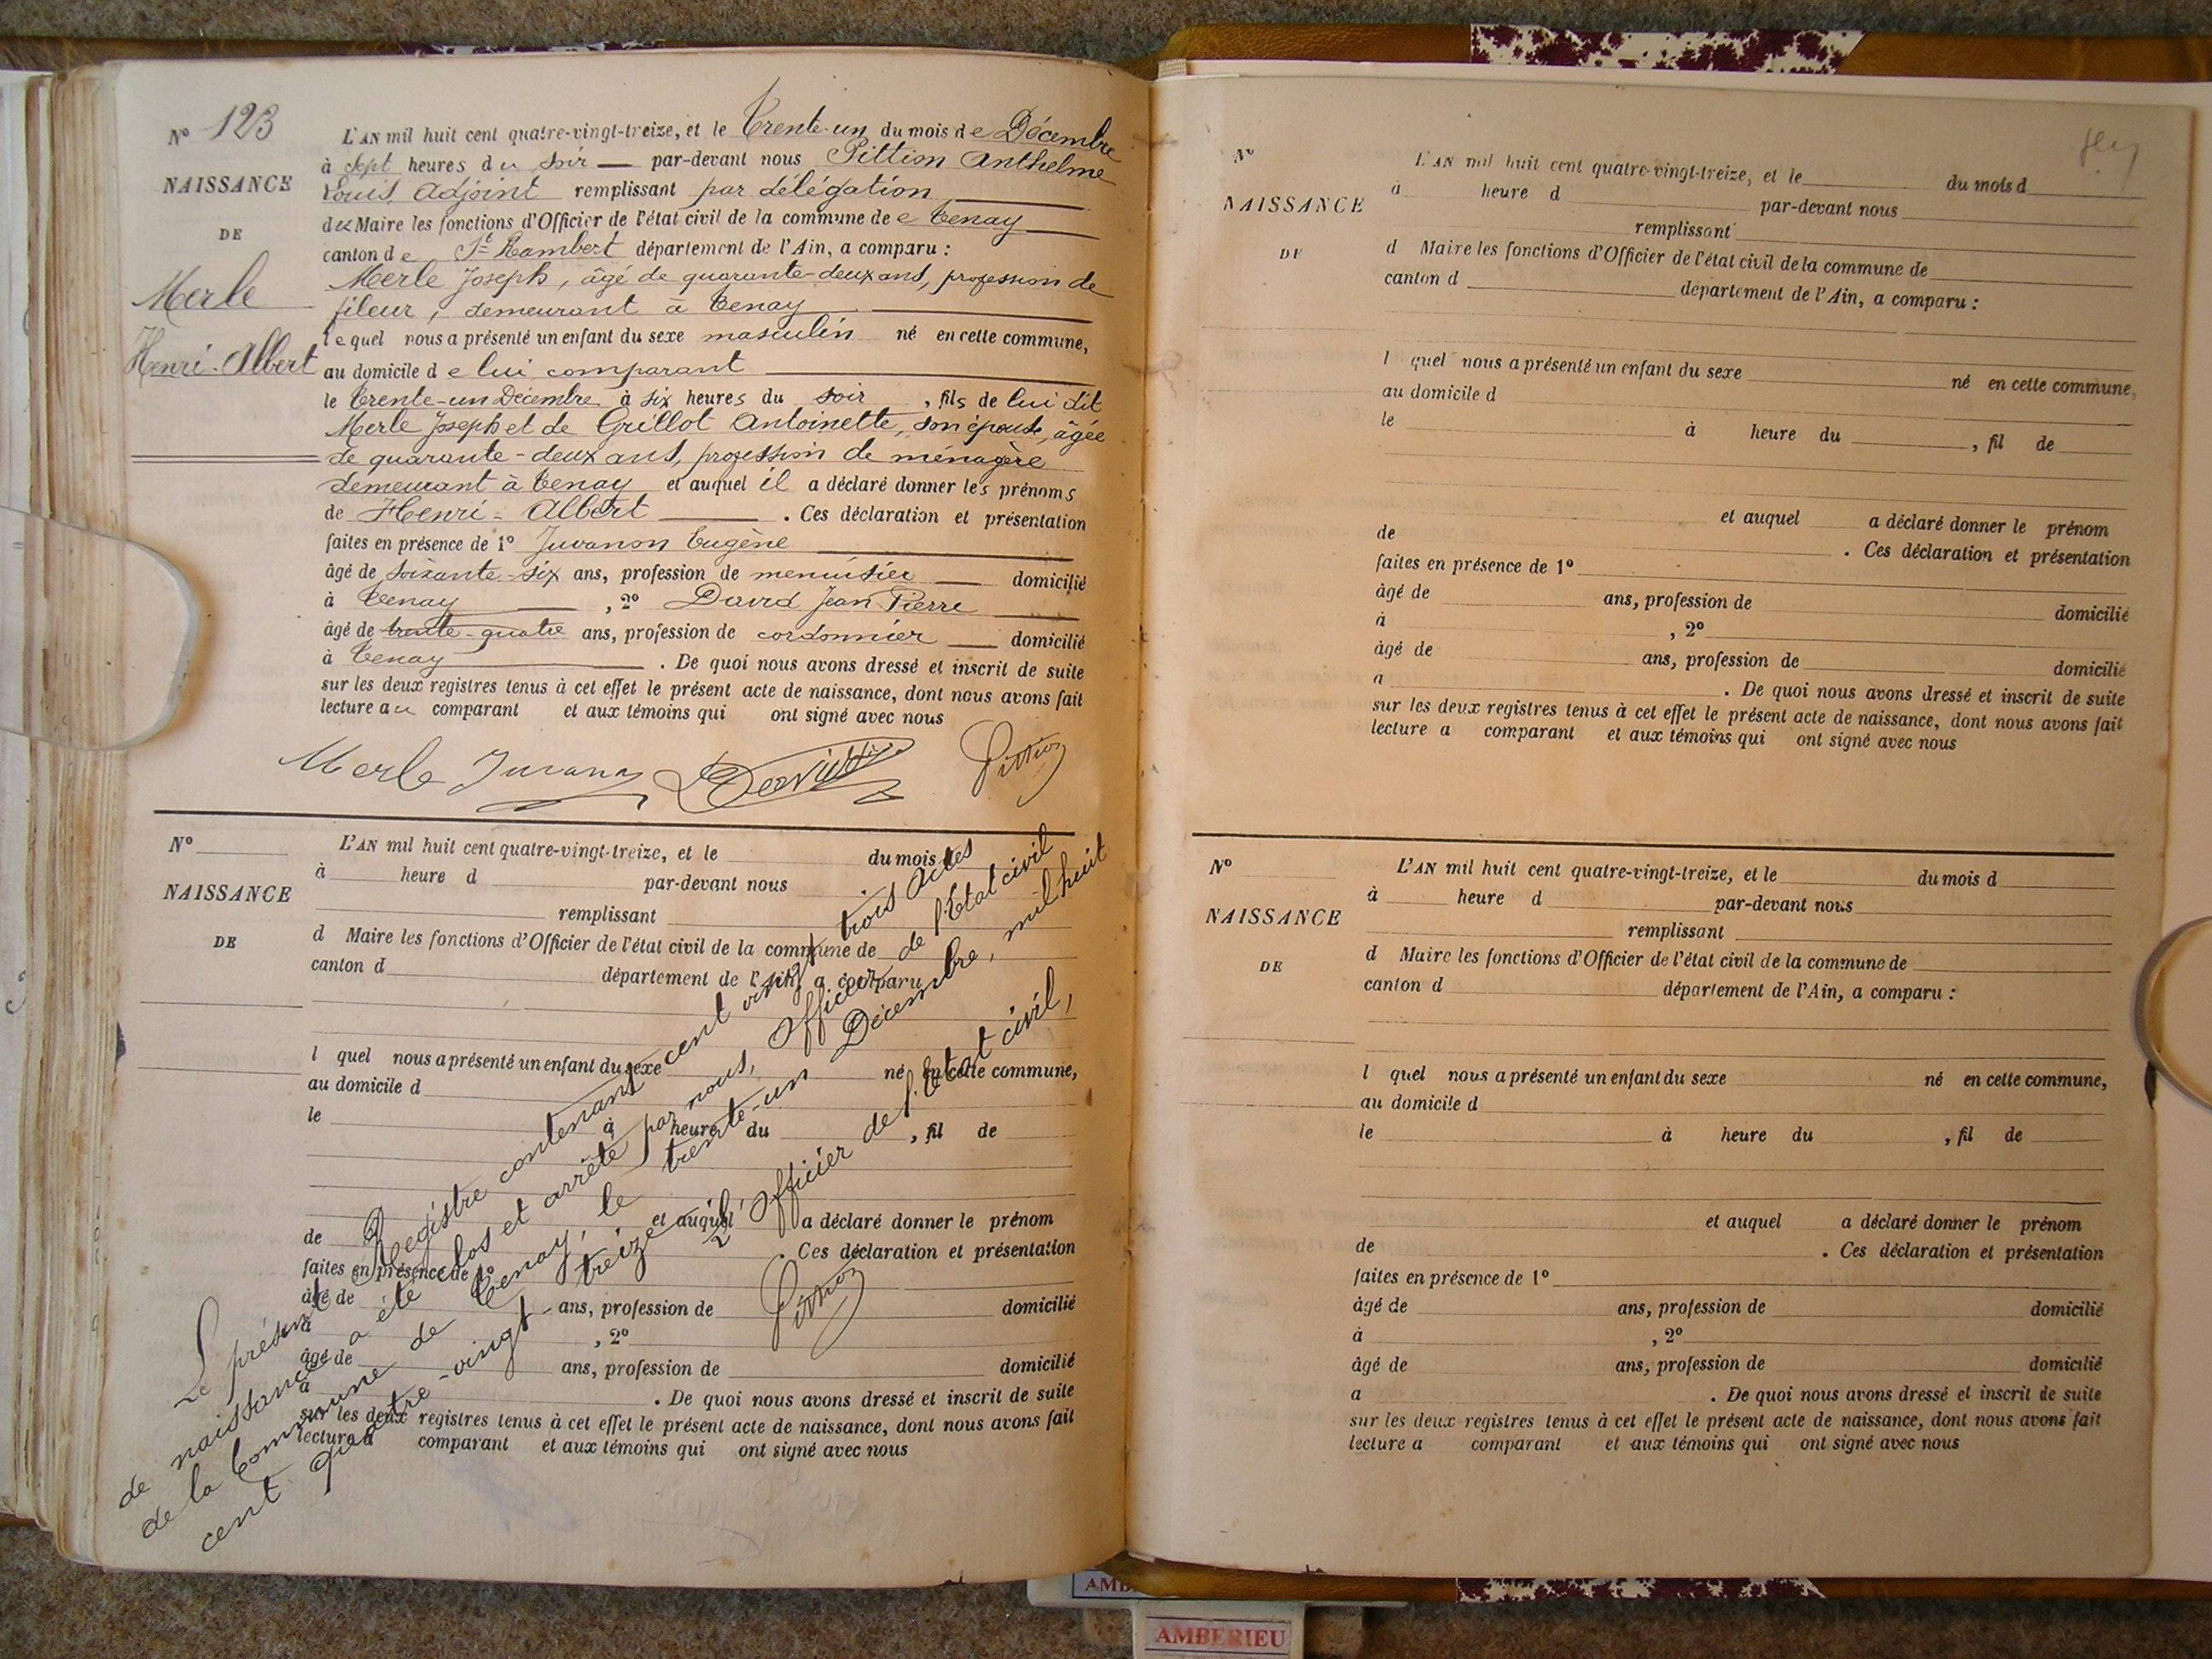 N° 123
NAISSANCE
DE
Merle
Henri-Albert
L'AN mil huit cent quatre-vingt-treize, et le Trente-un du mois de Décembre
à sept heures du soir — par-devant nous Pittion Anthelme
Louis, Adjoint remplissant par délégation
du Maire les fonctions d'Officier de l'état civil de la commune de Tenay
canton de St Rambert département de l'Ain, a comparu :
Merle Joseph, âgé de quarante-deux ans, profession de
fileur, demeurant à Tenay
lequel nous a présenté un enfant du sexe masculin né en cette commune,
au domicile de lui comparant
le Trente-un Décembre à six heures du soir, fils de lui dit
Merle Joseph et de Grillot Antoinette, son épouse, âgée
de quarante-deux ans, profession de ménagère
demeurant à Tenay et auquel il a déclaré donner les prénoms
de Henri-Albert . Ces déclaration et présentation
faites en présence de 1° Juvanon Eugène
âgé de soixante-six ans, profession de menuisier domicilié
à Tenay , 2° David Jean Pierre
âgé de trente-quatre ans, profession de cordonnier domicilié
à Tenay . De quoi nous avons dressé et inscrit de suite
sur les deux registres tenus à cet effet le présent acte de naissance, dont nous avons fait
lecture au comparant et aux témoins qui ont signé avec nous
Merle Juvanon David Pittion
N°
NAISSANCE
DE
L'AN mil huit cent quatre-vingt-treize, et le du mois
à heure d par-devant nous
remplissant
d Maire les fonctions d'Officier de l'état civil de la commune de
canton d département de l'Ain, a comparu
l quel nous a présenté un enfant du sexe né en cette commune,
au domicile d
le à heure du , fil de
et auquel a déclaré donner le prénom
de . Ces déclaration et présentation
faites en présence de 1°
âgé de ans, profession de domicilié
à , 2°
âgé de ans, profession de domicilié
à . De quoi nous avons dressé et inscrit de suite
sur les deux registres tenus à cet effet le présent acte de naissance, dont nous avons fait
lecture a comparant et aux témoins qui ont signé avec nous
Le présent Registre contenant cent vingt trois actes
de naissance a été clos et arrêté par nous, Officier de l'Etat civil
de la Commune de Tenay, le trente-un Décembre, mil huit
cent quatre-vingt-treize
L'Officier de l'Etat civil,
Pittion
N°
NAISSANCE
DE
L'AN mil huit cent quatre-vingt-treize, et le du mois d
à heure d par-devant nous
remplissant
d Maire les fonctions d'Officier de l'état civil de la commune de
canton d département de l'Ain, a comparu :
l quel nous a présenté un enfant du sexe né en cette commune,
au domicile d
le à heure du , fil de
et auquel a déclaré donner le prénom
de . Ces déclaration et présentation
faites en présence de 1°
âgé de ans, profession de domicilié
à , 2°
âgé de ans, profession de domicilié
a . De quoi nous avons dressé et inscrit de suite
sur les deux registres tenus à cet effet le présent acte de naissance, dont nous avons fait
lecture a comparant et aux témoins qui ont signé avec nous
N°
NAISSANCE
DE
L'AN mil huit cent quatre-vingt-treize, et le du mois d
à heure d par-devant nous
remplissant
d Maire les fonctions d'Officier de l'état civil de la commune de
canton d département de l'Ain, a comparu :
l quel nous a présenté un enfant du sexe né en cette commune,
au domicile d
le à heure du , fil de
et auquel a déclaré donner le prénom
de . Ces déclaration et présentation
faites en présence de 1°
âgé de ans, profession de domicilié
à , 2°
âgé de ans, profession de domicilié
a . De quoi nous avons dressé et inscrit de suite
sur les deux registres tenus à cet effet le présent acte de naissance, dont nous avons fait
lecture a comparant et aux témoins qui ont signé avec nous
AMB
AMBERIEU